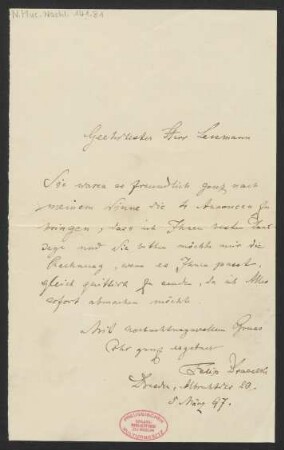 N. Mus. Nachl.
Geehrtester Herr Lessmann
Sie waren so freundlich ganz nach
meinem Sinne die 4 Annoncen zu
bringen, dass ich Ihnen besten Dank
sage und Sie bitten möchte mir die
Rechnung, wenn es Ihnen passt,
gleich quittirt zu senden, da ich Alles
sofort abmachen möchte
Mit hochachtungsvollem Gruss
Ihr ganz ergebner
Felix Draeseke
Dresden,
8 März 97.